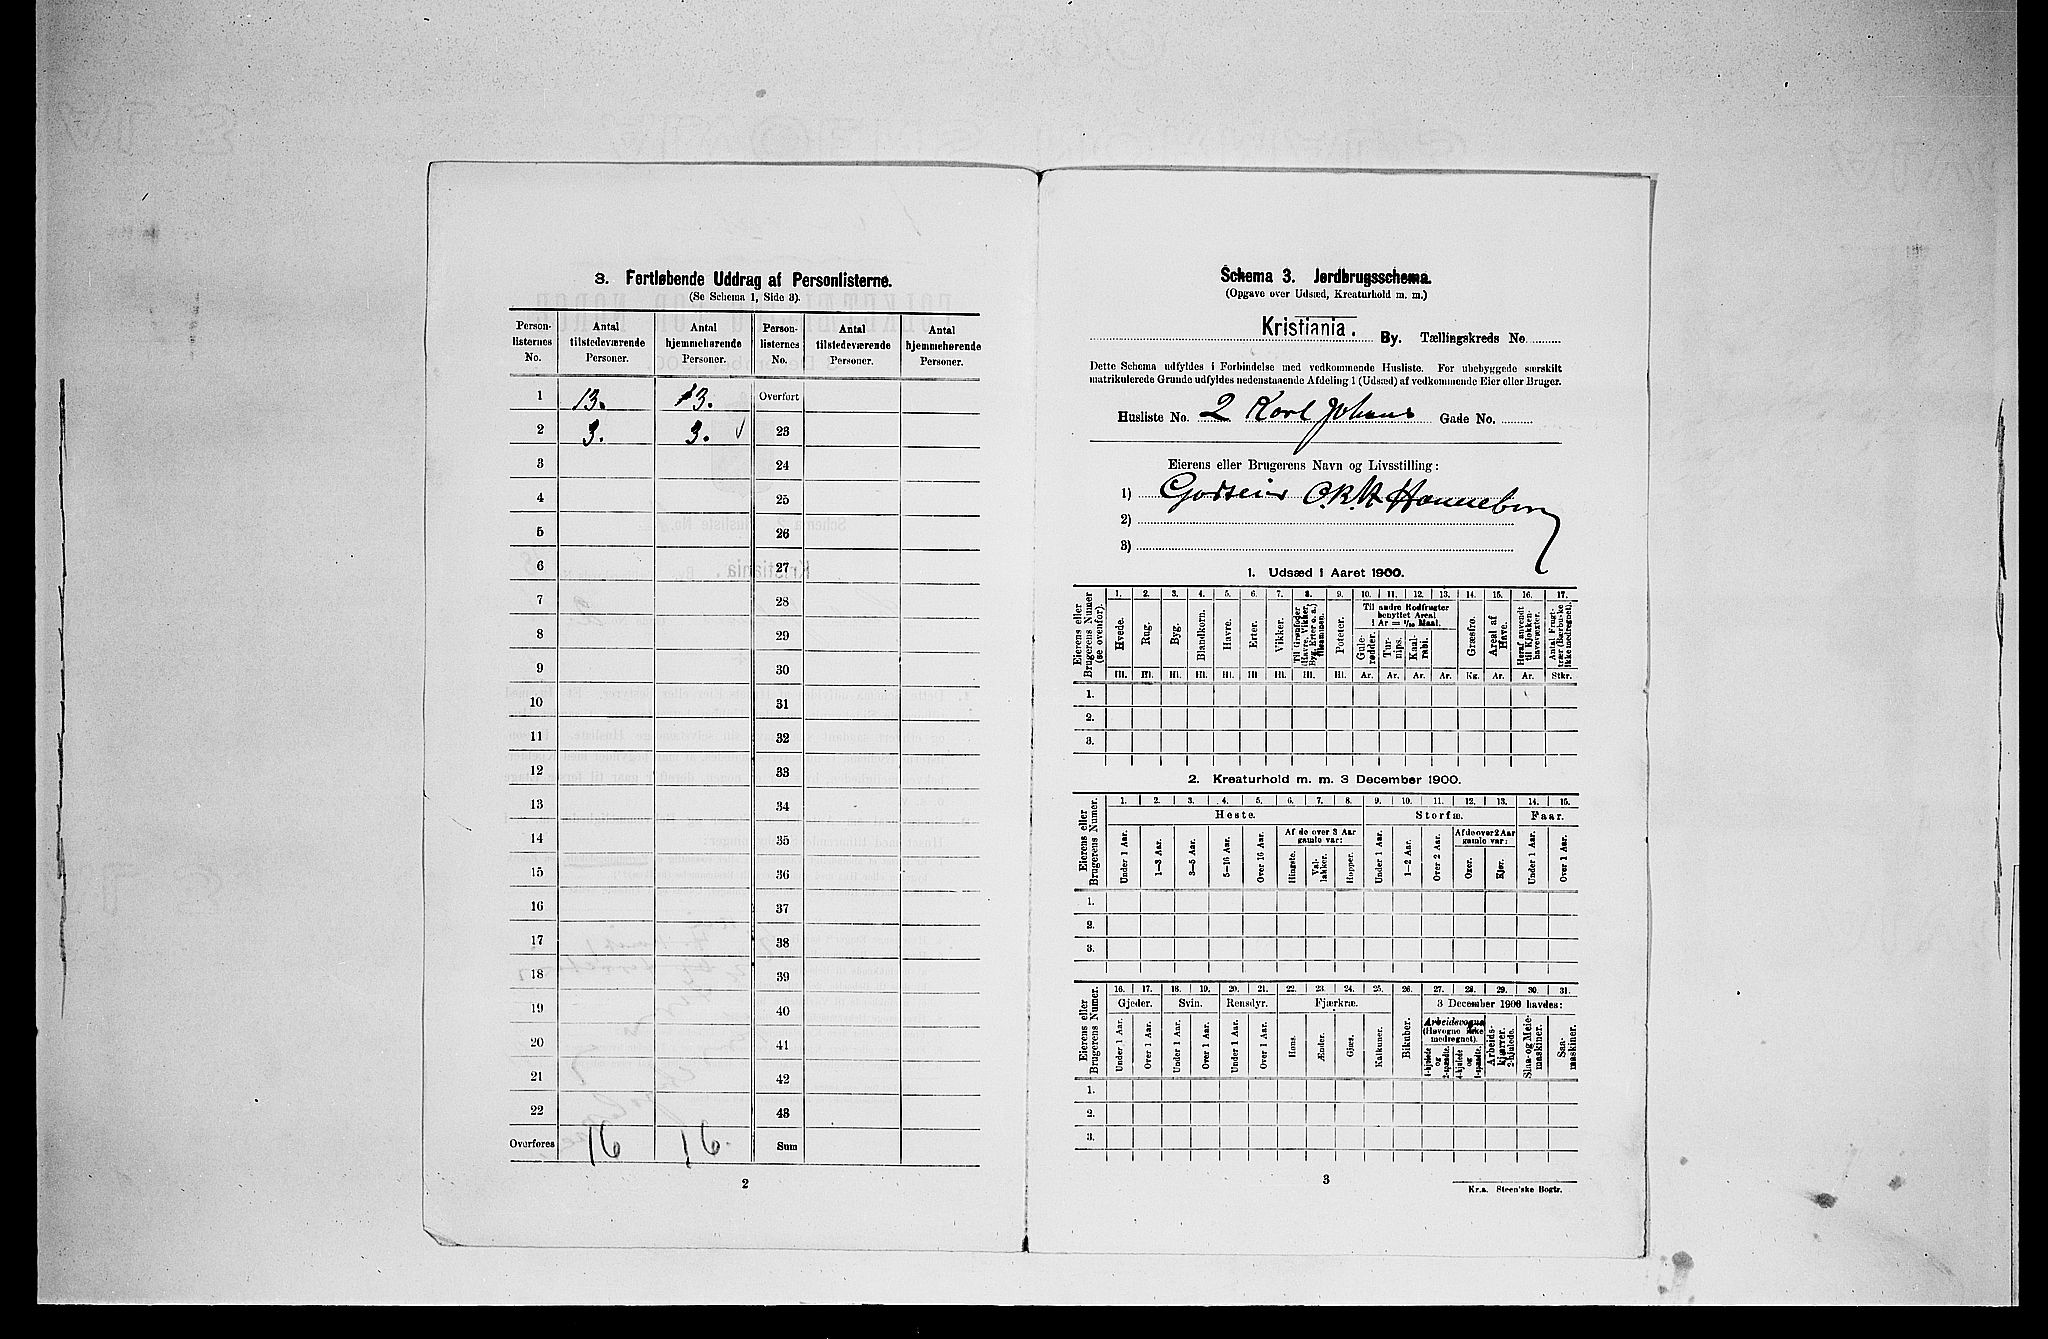 3. Fortløbende Uddrag af Personlisterne.
(Se Schema 1, Side 3).
Person-listernes No. Antal tilstedeværende Personer. Antal hjemmehørende Personer. Person-listernes No. Antal tilstedeværende Personer. Antal hjemmehørende Personer.
1 13. 13. Overført
2 3. 3. 23
3 24
4 25
5 26
6 27
7 28
8 29
9 30
10 31
11 32
12 33
13 34
14 35
15 36
16 37
17 38
18 39
19 40
20 41
21 42
22 43
Overføres 16 16. Sum
2
Schema 3. Jordbrugsschema.
(Opgave over Udsæd, Kreaturhold m. m.)
Kristiania. By. Tællingskreds No.
Dette Schema udfyldes i Forbindelse med vedkommende Husliste. For ubebyggede særskilt
matrikulerede Grunde udfyldes nedenstaaende Afdeling 1 (Udsæd) af vedkommende Eier eller Bruger.
Husliste No. 2 Karl Johans Gade No.
Eierens eller Brugerens Navn og Livsstilling:
1) Godseier Hanneborg
2)
3)
1. Udsæd i Aaret 1900.
Eierens eller Brugerens Numer (se ovenfor).
1. 2. 3. 4. 5. 6. 7. 8. 9. 10. 11. 12. 13. 14. 15. 16. 17.
Hvede. Rug. Byg. Blandkorn. Havre. Erter. Vikker. Til Grønfoder (Havre, Vikker, Byg, Erter o. a.) tilsammen. Poteter. Til andre Rodfrugter benyttet Areal 1 Ar = 1/10 Maal. Gule-rødder. Tur-nips. Kaal-rabi. Græsfrø. Areal af Have. Heraf anvendt til Kjøkken-havevæxter. Antal Frugt-trær (Bærbuske ikke medregnet).
Hl. Hl. Hl. Hl. Hl. Hl. Hl. Hl. Hl. Ar. Ar. Ar. Ar. Kg. Ar. Ar. Stkr.
1.
2.
3.
2. Kreaturhold m. m. 3 December 1900.
Eierens eller Brugerens Numer.
1. 2. 3. 4. 5. 6. 7. 8. 9. 10. 11. 12. 13. 14. 15.
Heste. Storfæ. Faar.
Af de over 3 Aar gamle var: Af de over 2 Aar gamle var:
Under 1 Aar. 1—3 Aar. 3—5 Aar. 5—16 Aar. Over 16 Aar. Hingste. Val-lakker. Hopper. Under 1 Aar. 1—2 Aar. Over 2 Aar. Oxer. Kjør. Under 1 Aar. Over 1 Aar.
1.
2.
3.
Eierens eller Brugerens Numer.
16. 17. 18. 19. 20. 21. 22. 23. 24. 25. 26. 27. 28. 29. 30. 31.
Gjeder. Svin. Rensdyr. Fjærkræ. 3 December 1900 havdes:
Under 1 Aar. Over 1 Aar. Under 1 Aar. Over 1 Aar. Under 1 Aar. Over 1 Aar. Høns. Ænder. Gjæs. Kalkuner. Bikuber. Arbeidsvogne (Høvogne ikke medregnet). 4-hjulede og 2-spændte. 4-hjulede og 1-spændte. Arbeids-kjærrer, 2-hjulede. Slaa- og Meie-maskiner. Saa-maskiner.
1.
2.
3.
3
Kr.a. Steen'ske Bogtr.